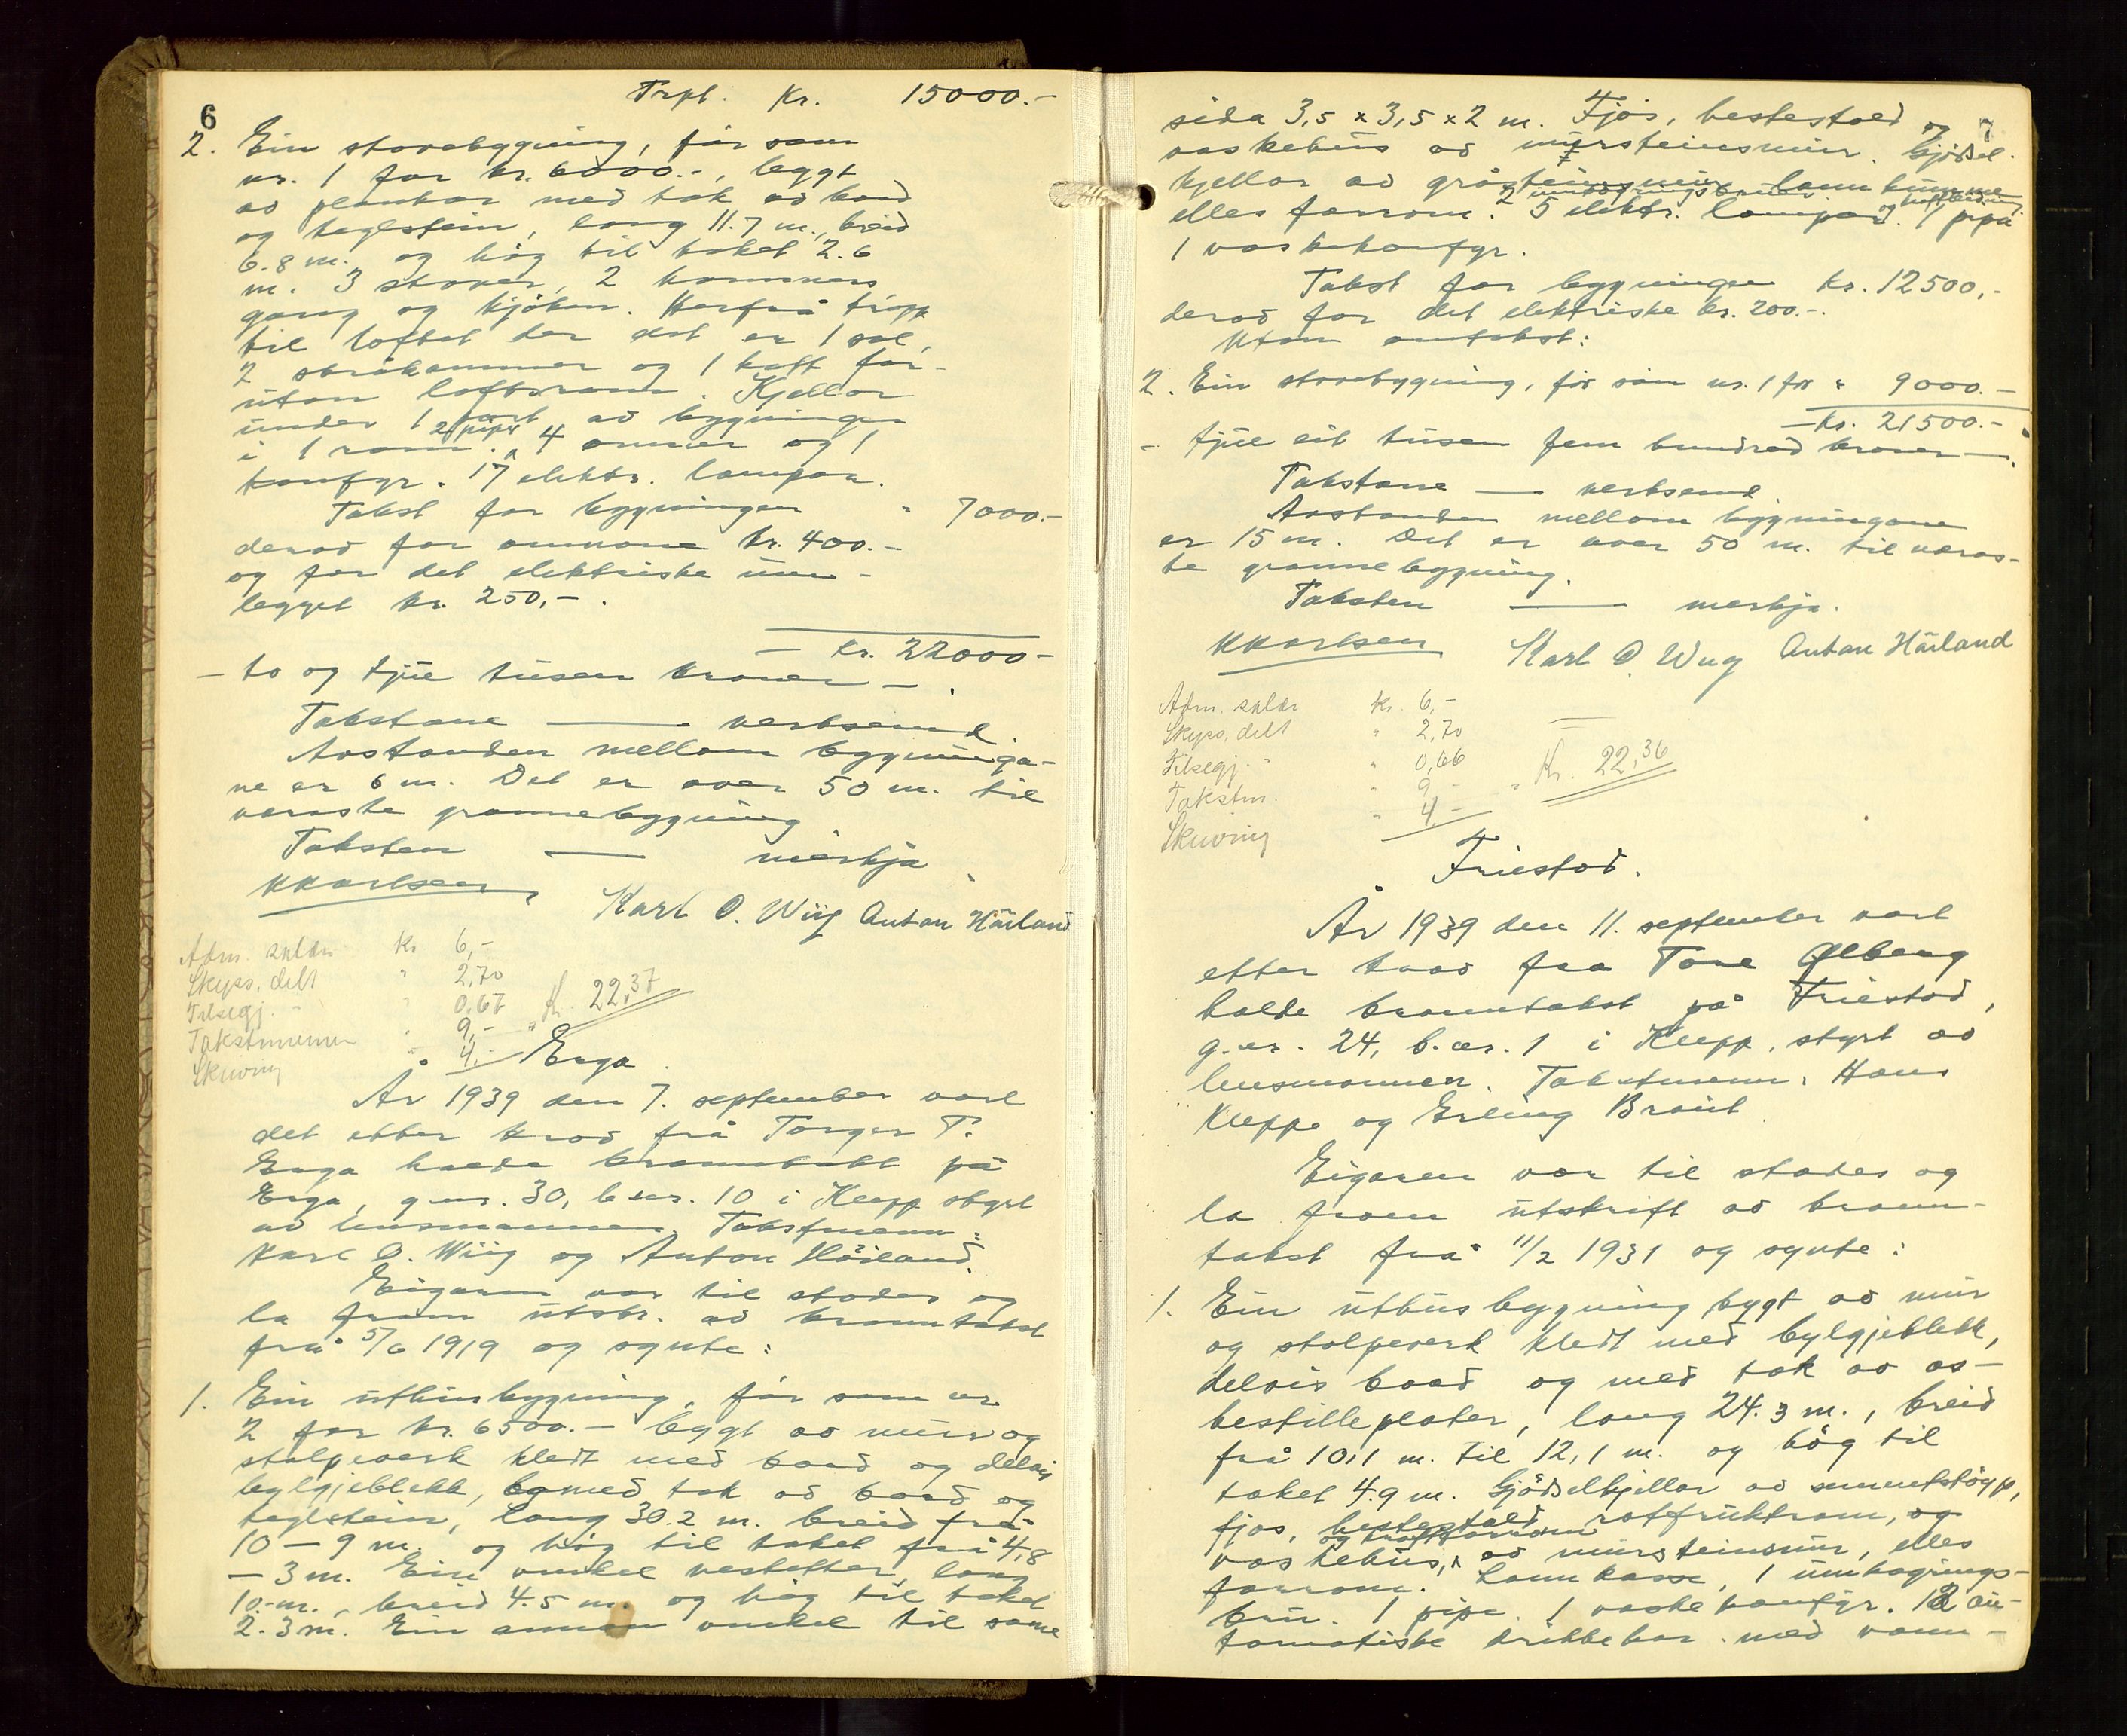 6
Trpt. Kr. 15000.-
2. Ein stovebygning, før som
nr. 1 for kr. 6000.-, bygt
av plankar med tak av bord
og teglstein, lang 11.7 m., breid
6.8 m. og høg til taket 2.6
m. 3 stover, 2 kommers
gang og kjøken. Herfrå tropp
til loftet der det er 1 sal,
2 skråkammer og 1 koft for-
utan loftsrom. Kjellar
under 1 part av bygningen
i 1 rom. 2 piper 4 omner og 1
komfyr. 17 elektr. lampar.
Takst for bygningen " 7000.-
derav for omnane kr. 400.-
og for det elektriske inn-
legget kr. 250,-.
— Kr. 22000-
- to og tjue tusen kroner -.
Takstane —— verksemd.
Avstanden mellom bygninga-
ne er 6 m. Det er over 50 m. til
næraste grannebygning
Taksten —— merkja.
KKarlsen, Karl O. Wiig Anton Håland
Adm. Kr 6,-
Skyss, delt " 2,70
Tilsegj. - " 0,67 " Kr. 22,37
Takstmenn " 9,-
Skriving " 4,-
Erga.
År 1939 den 7. september vart
det etter krav frå Torger T.
Erga halde branntakst på
Erga, g.nr. 30, b.nr. 10 i Klepp styrt
av lensmannen. Takstmenn:
Karl O. Wiig og Anton Håiland.
Eigaren var til stades og
la fram utskr. av branntakst
frå 5/6 1919 og synte:
1. Ein uthusbygning, før som nr
2 for kr. 6500.- bygt av mur og
stolpeverk kledt med bord og delvis
bylgjeblekk, og med tak av bord og
teglstein, lang 30.2 m. breid frå
10 - 9 m. og høg til taket frå 4,8
- 3 m. Ein vinkel vestetter, lang
10.- m., breid 4.5 m. og høg til taket
2.3 m. Ein annan vinkel til same
7
sida 3,5 x 3,5 x 2 m. Fjøs, hestestall og
vaskehus av mursteinsmur. Gjødsel-
kjellar av gråsteinsmur. lønn kumme
elles forrom. 2 innkøyringsbruer og høyfleading
5 elektr. lampar. 1 pipa
1 vaskekomfyr.
Takst for bygningen kr. 12500,-
derav for det elektriske kr. 200.-.
Utan omtakst:
2. Ein stovebygning, før som nr. 1 for " 9000.-
— Kr. 21500.-
- tjue eit tusen fem hundrad kroner —.
Takstane —— verksemd.
Avstanden mellom bygningane
er 15 m. Det er over 50 m. til næras-
te grannebygning.
Taksten —— merkja.
KKarlsen Karl O. Wiig Anton Håland
Adm. Kr. 6,-
Skyss, delt " 2,70
Tilsegj. - " 0,66 Kr. 22,36
Takstm. " 9,-
Skriving " 4,-
Friestad.
År 1939 den 11. september vart
etter krav fra Tore Ølberg
halde branntakst på Friestad,
g.nr. 24, b.nr. 1 i Klepp, styrt av
lensmannen. Takstmenn: Hans
Kleppe og Erling Braut.
Eigaren var til stades og
la fram utskrift av brann-
takst frå 11/2 1931 og synte:
1. Ein uthusbygning bygt av mur
og stolpeverk kledt med bylgjeblekk,
delvis bord og med tak av as-
bestilleplater, lang 24.3 m., breid
frå 10,1 m. til 12,1 m. og høg til
taket 4.9 m. Gjødselkjellar av sementstøyp,
fjøs, hestestall, rotfruktrom, og
vaskehus, og kraftforrom av mursteinsmur, elles
forrom. Lønnkasse, 1 innkøyrings-
bru. 1 pipe. 1 vaskekomfyr. 12 au-
tomatiske drikkekar med vann-